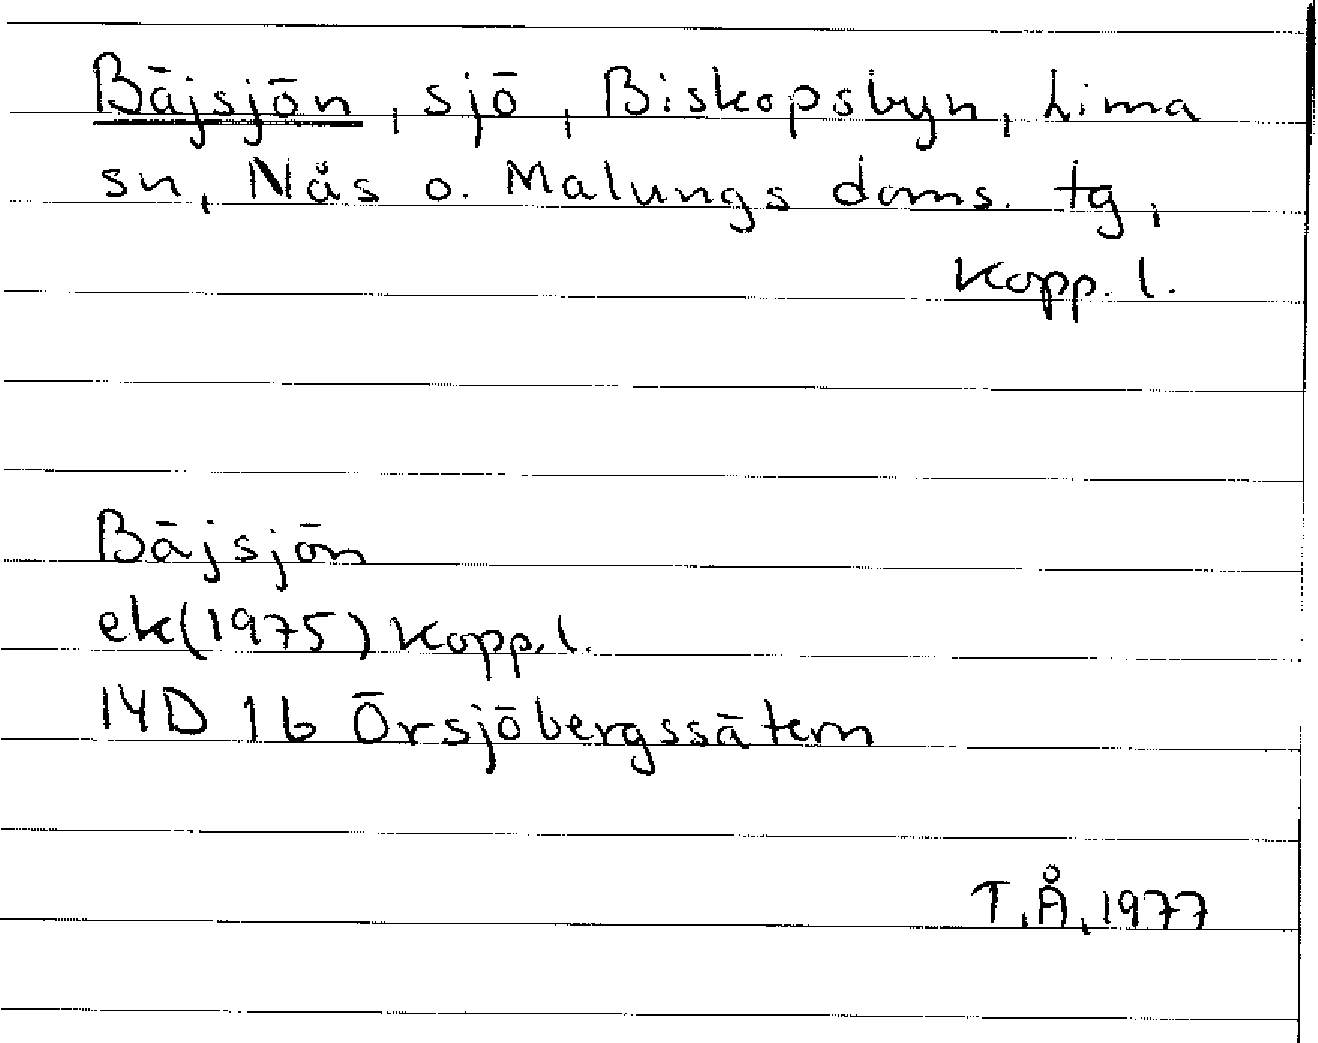 Bäjsjön, sjö, Biskopsbyn, Lima
sn, Nås o. Malungs doms. tg,
Kopp. l.
Bäjsjön
ek(1975) Kopp. l.
14D 1b Örsjöbergssätern
T.Å, 1977